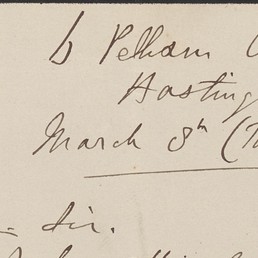 6 Pelham C
Hastings
March 8th (T
- Sir.